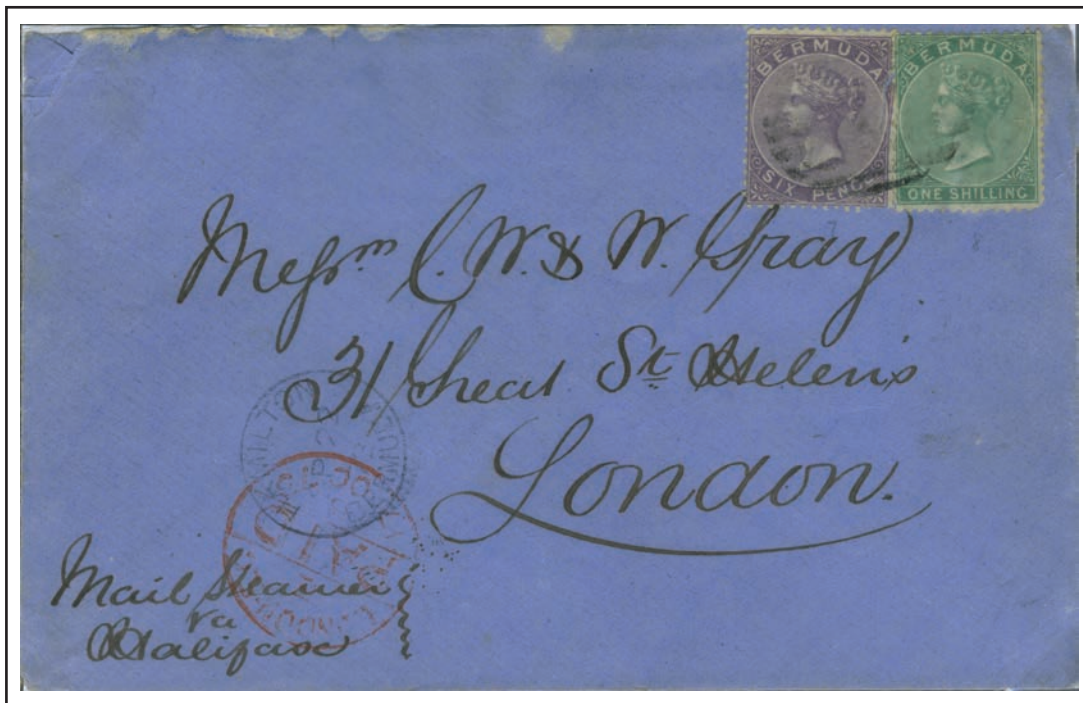 BERMUDA
SIX PENCE
BERMUDA
ONE SHILLING
Messrs C. W. & W. Gray
31 Great St Helens
London.
PAID
LONDON
Mail Steamer
via
Halifax